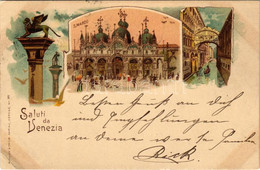 S. MARCO
Saluti
da
Venezia
Besten Gruß an dich und
Empfehlungen
an deine werte Familie
Rick